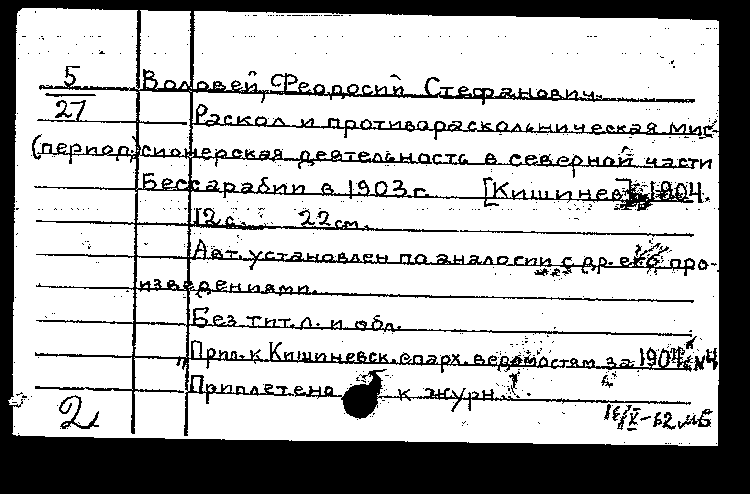 5 Воловей, Феодосий Стефанович.
27 Раскол и противораскольническая мис-
(период) сионерская деятельность в северной части
Бессарабии в 1903 г. [Кишинев], 1904.
12 с. 22 см.
Авт. установлен по аналогии с др. его про-
изведениями.
Без тит. л. и обл.
"Прил. к Кишиневск. епарх. ведомостям за 1904г." №4
Приплетено к журн.
2 16/X-62 МБ